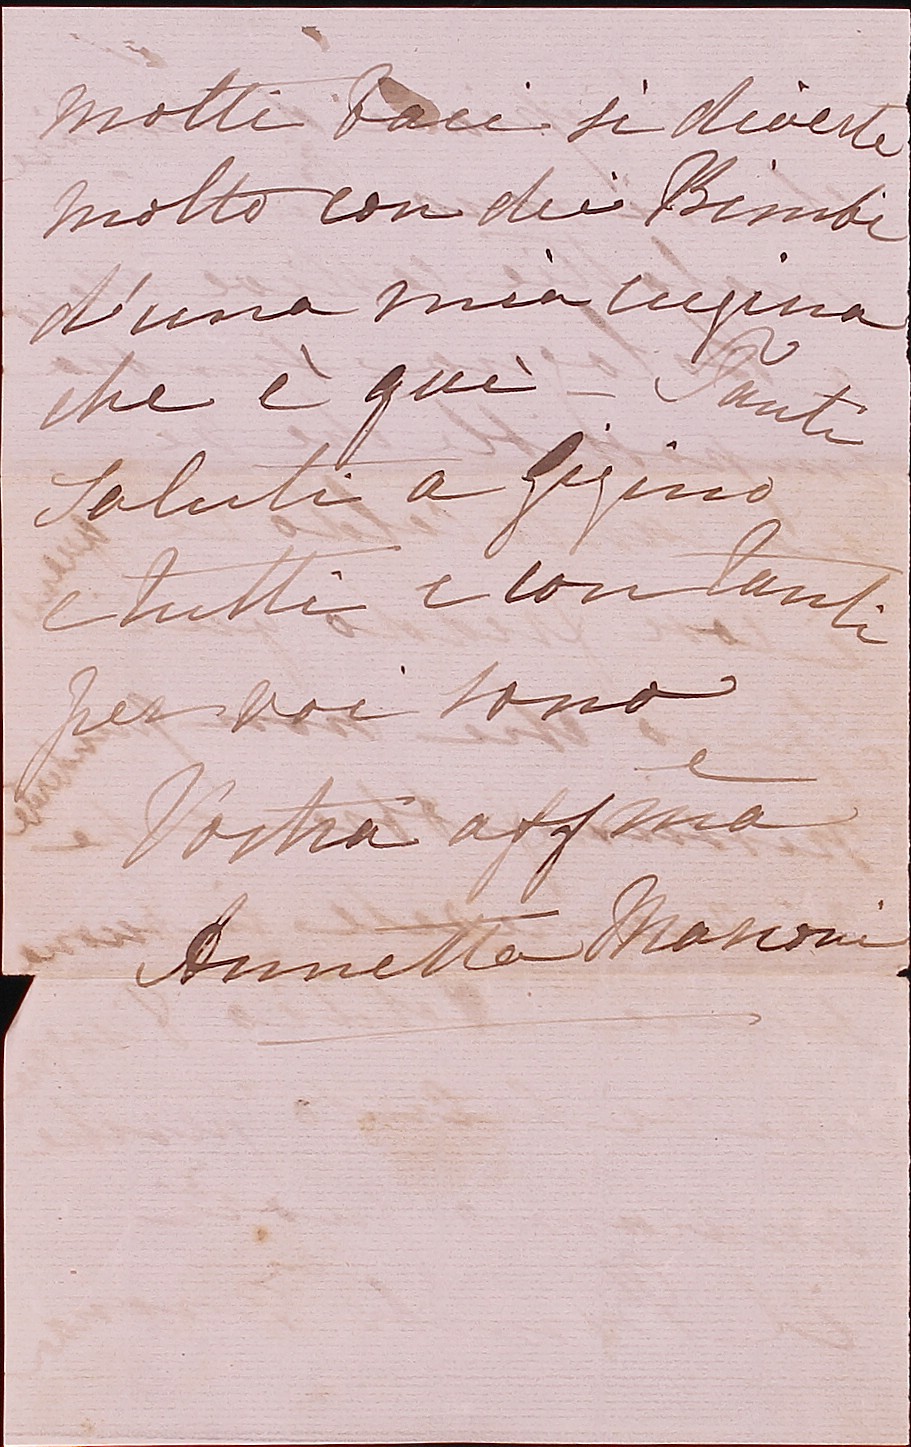 molti baci si diverte
molto con dei Bimbi
d'una mia cugina
che è quì – Tanti
saluti a Gigino
e tutti e con tanti
per voi sono
Vostra affma
Annetta Manoni